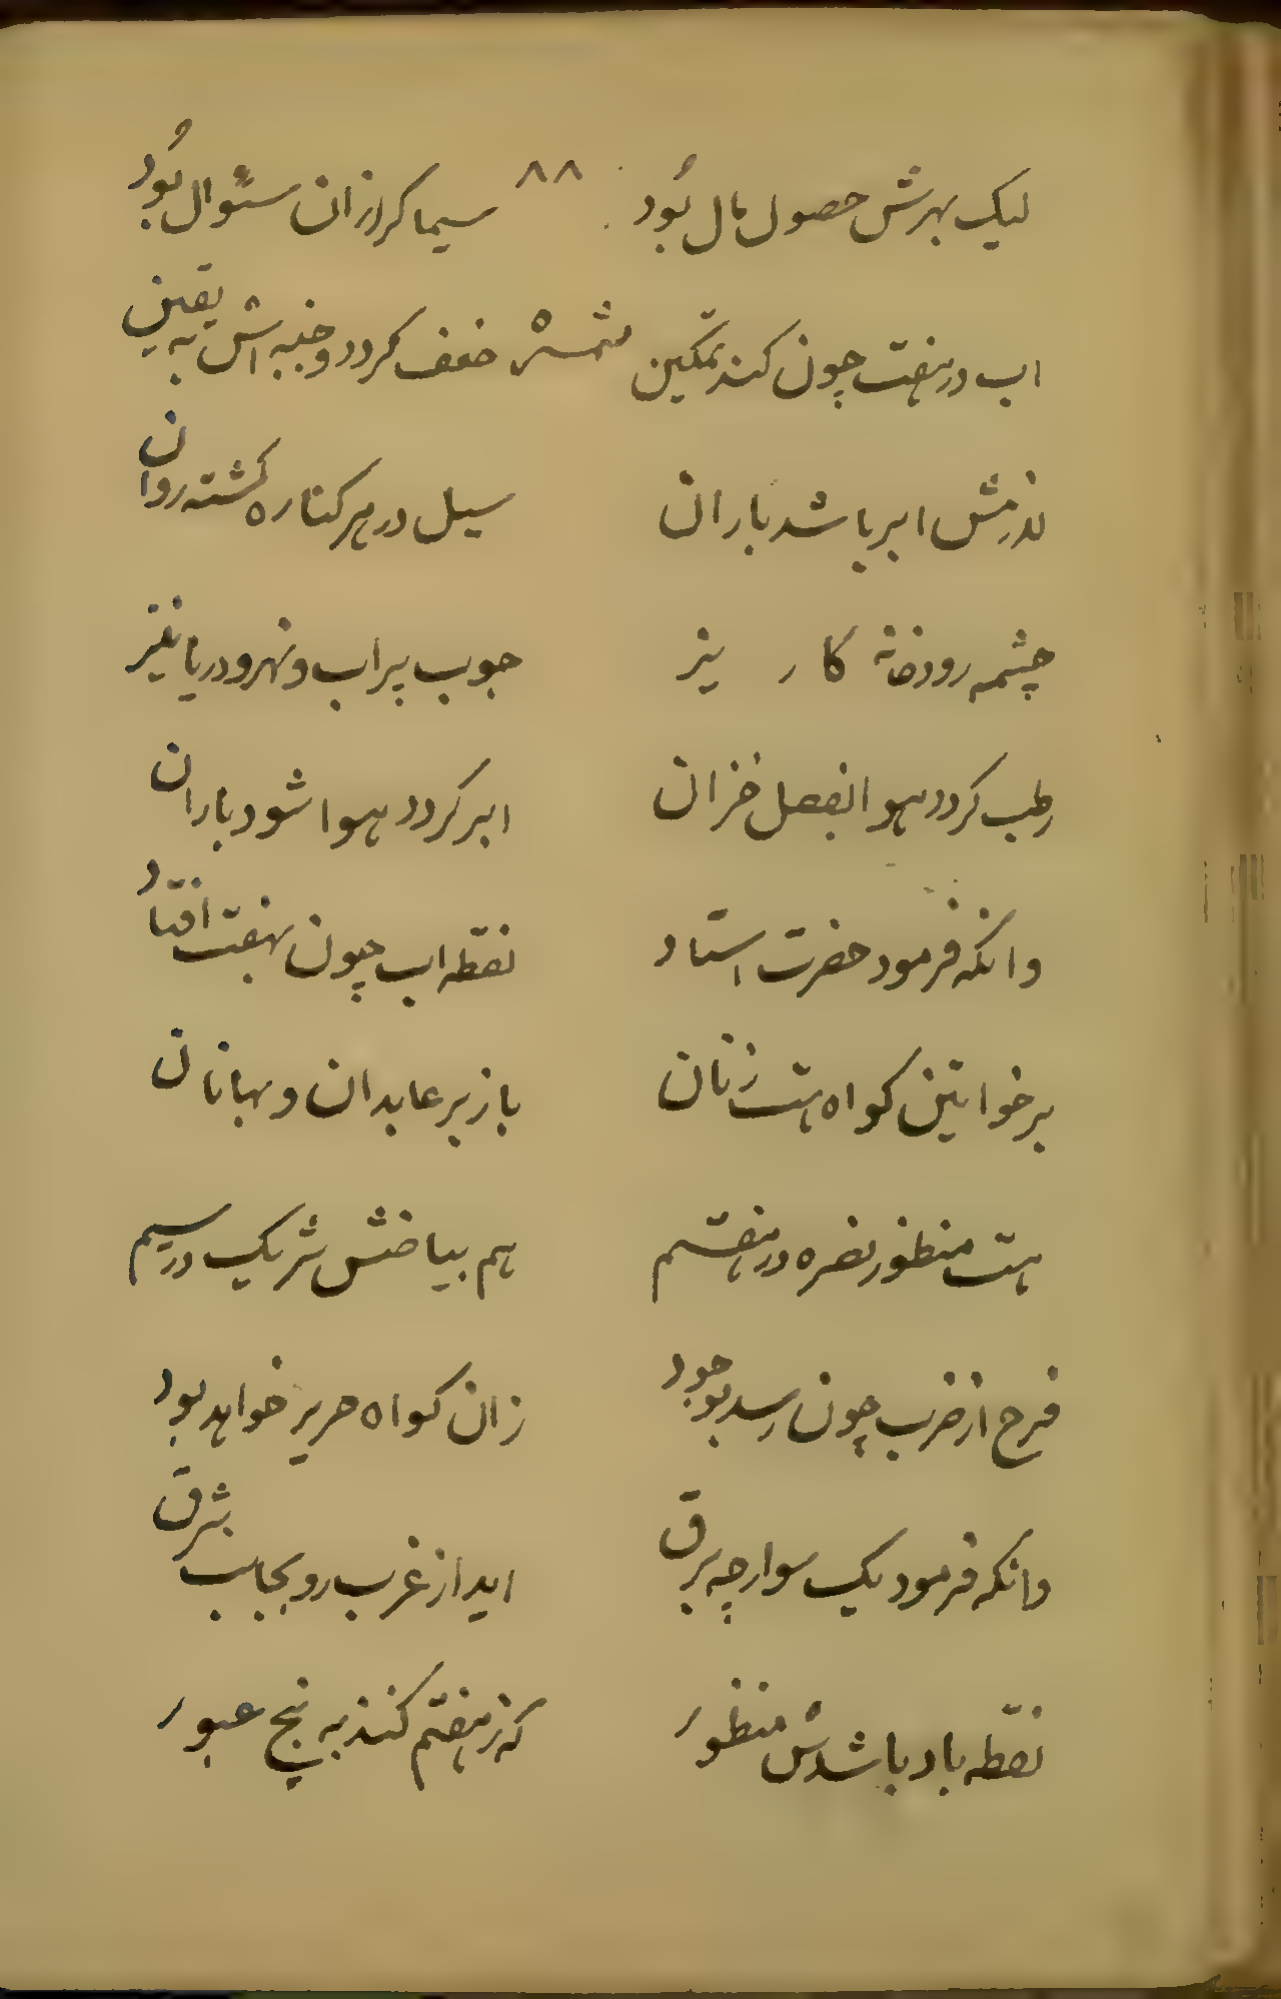 لیک بهرش حصول مال بُود ۸۸ سیما کر ازان سئوال بُود
اب در هفت چون کند تمکین ضعف کردد و جنبه اش به یقین
ابر باشد باران سیل در هر کناره کشته روان
چشمه رودخانه کار یز جوب پر اب و نهر و دریا نیز
رطب کردد هوا بفصل خزان ابر کردد هوا شود باران
وانکه فرمود حضرت استاد نقطه اب چون بهفت افتاد
بر خواتین کواه هست زنان باز بر عابدان و رهبانان
هست منظور نصره در هفتم هم بیاضش شریک در سیم
فرح از ضرب چون رسد بوجود زان کواه حریر خواهد بود
وانکه فرمود یک سوار چه برق اید از غرب رو بجانب شرق
نقطه باد باشدش منظور که ز هفتم کند به پنج عبور